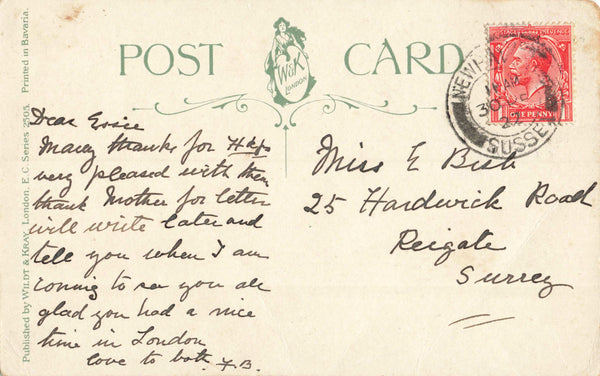 POST CARD
W&K
LONDON
POSTAGE REVENUE
ONE PENNY
NEWHA
11 AM
30
22
SUSSEX
Published by WILDT & KRAY, London, E. C. Series 2505. Printed in Bavaria.
Dear Essie
Many thanks for Hkfs
very pleased with them
thank Mother for letter
will write later and
tell you when I am
coming to see you all
glad you had a nice
time in London
love to both F.B.
Miss E Bish
25 Hardwick Road
Reigate
Surrey